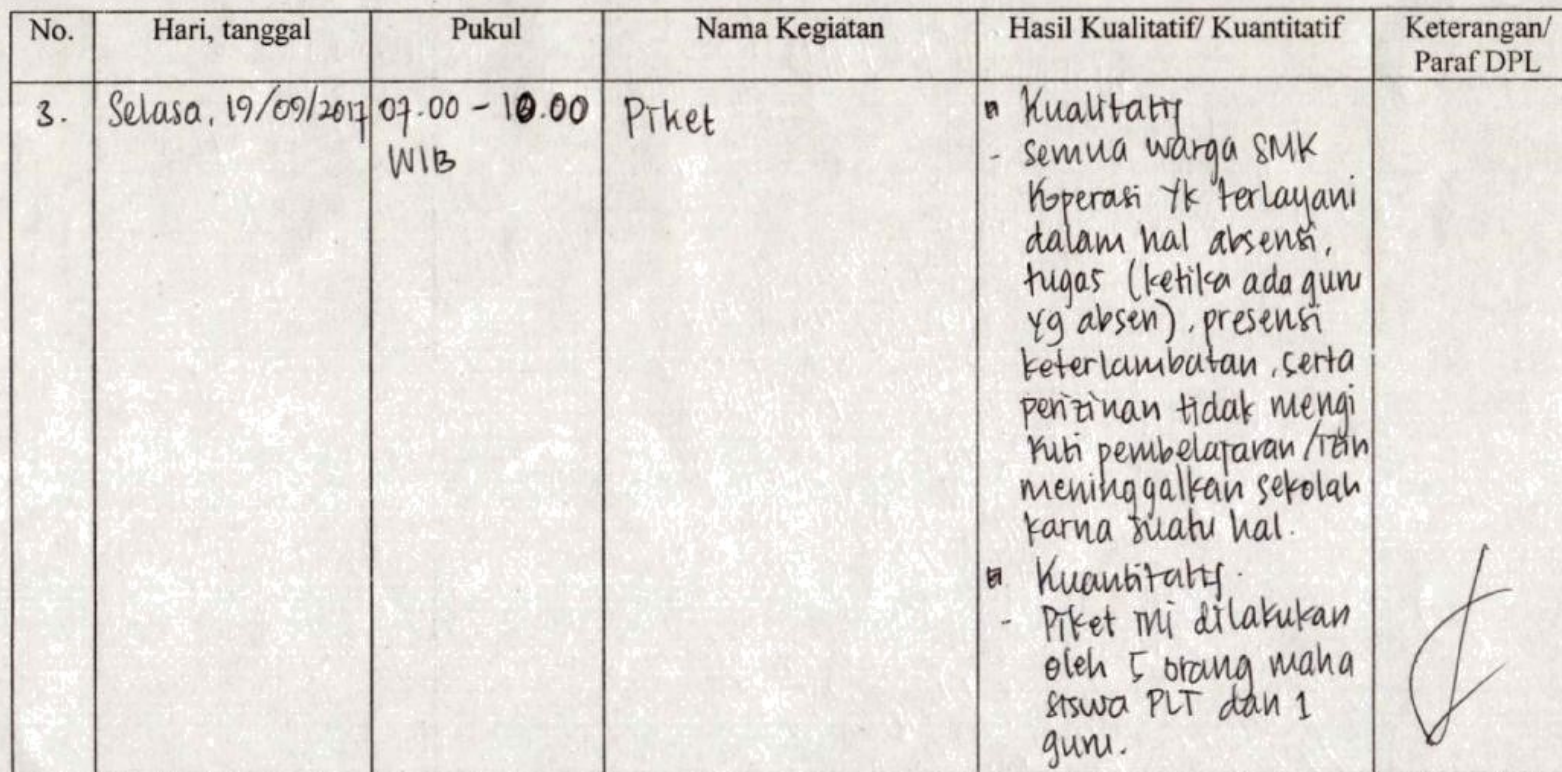 No. Hari, tanggal Pukul Nama Kegiatan Hasil Kualitatif/ Kuantitatif Keterangan/
Paraf DPL
3. Selasa, 19/09/2017 07.00 - 10.00 Piket Kualitatif
WIB - semua warga SMK
Koperasi Yk terlayani
dalam hal absensi,
tugas (ketika ada guru
yg absen), presensi
keterlambatan, serta
perizinan tidak mengi
kuti pembelajaran/izin
meninggalkan sekolah
karna suatu hal.
Kuantitatif.
- Piket ini dilakukan
oleh 5 orang maha
siswa PLT dan 1
guru.